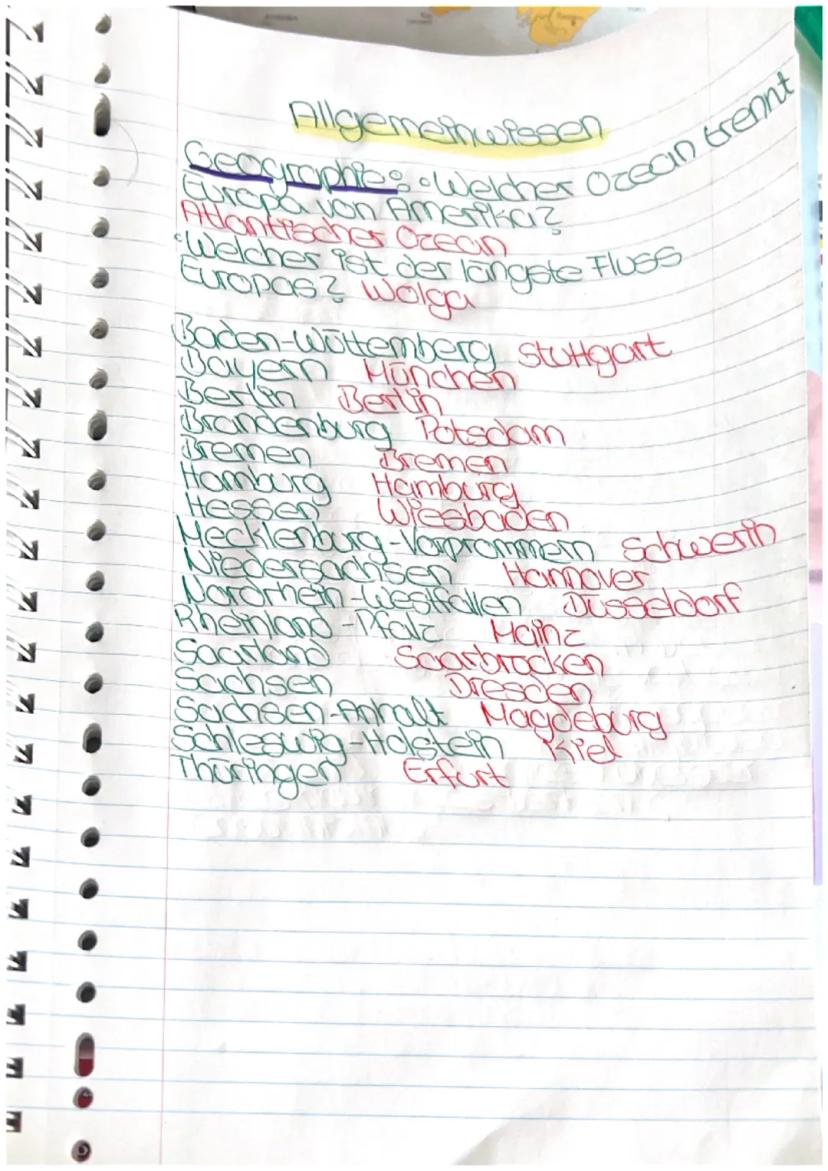 Allgemeinwissen
Geographie: • Welcher Ozean trennt
Europa von Amerika?
Atlantischer Ozean
• Welcher ist der längste Fluss
Europas? Wolga
Baden-Wüttemberg Stuttgart
Bayern München
Berlin Berlin
Brandenburg Potsdam
Bremen Bremen
Hamburg Hamburg
Hessen Wiesbaden
Mecklenburg-Vorprommern Schwerin
Niedersachsen Hannover
Nordrhein-Westfallen Düsseldorf
Rheinland-Pfalz Mainz
Saarland Saarbrücken
Sachsen Dresden
Sachsen-Anhalt Magdeburg
Schleswig-Holstein Kiel
Thüringen Erfurt